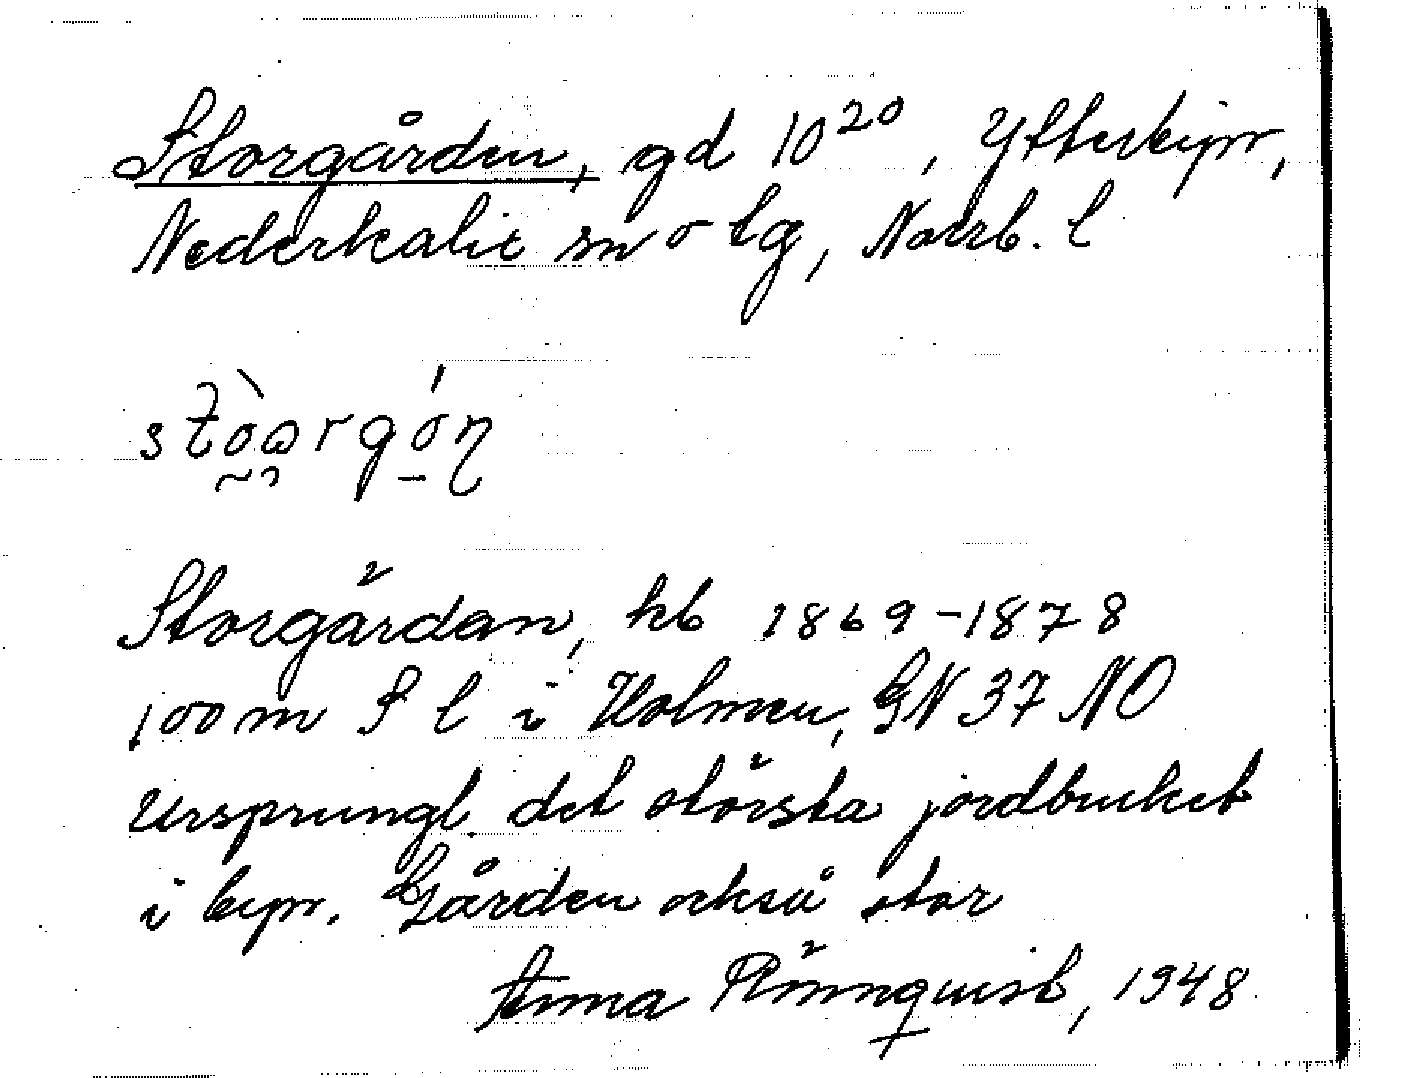 Storgården, gd 10²⁰, Ytterbyn,
Nederkalix sn o tg, Norrb. l
Storgårdan, kb 1869-1878
100 m S l i Holmen, GN 37 NO
Ursprungl. det största jordbruket
i byn. Gården också stor
Anna Rönnquist, 1948